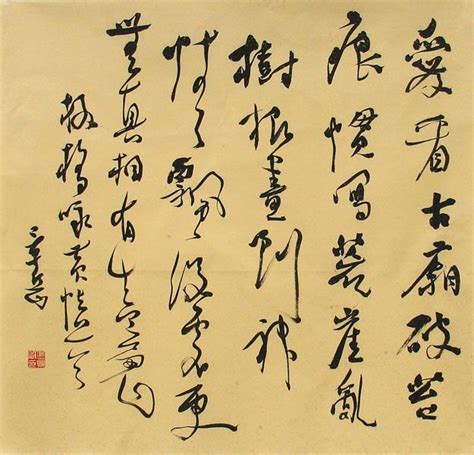 愛看古廟破苔
痕慣寫荒崖亂
樹根畫到神
情飄沒處更
無真相有真魂
板橋咏黄慎